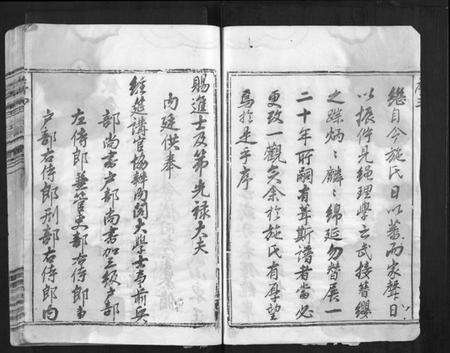 繼自今施氏日以蕃而家聲日
以振伫見繩理學之武接簪纓
之踪炳炳麟麟綿延勿替展一
二十年所嗣有葺斯譜者當必
更改一觀矣余於施氏有厚望
焉於是乎序
賜進士及第光祿大夫
內廷供奉
經筵講官協辦內閣大學士事前兵
部尚書戶部尚書加三級吏部
左侍郎兼管吏部右侍郎事
戶部右侍郎刑部右侍郎內